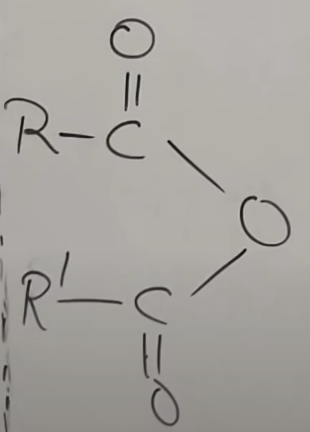 O
R-C
O
R'-C
O